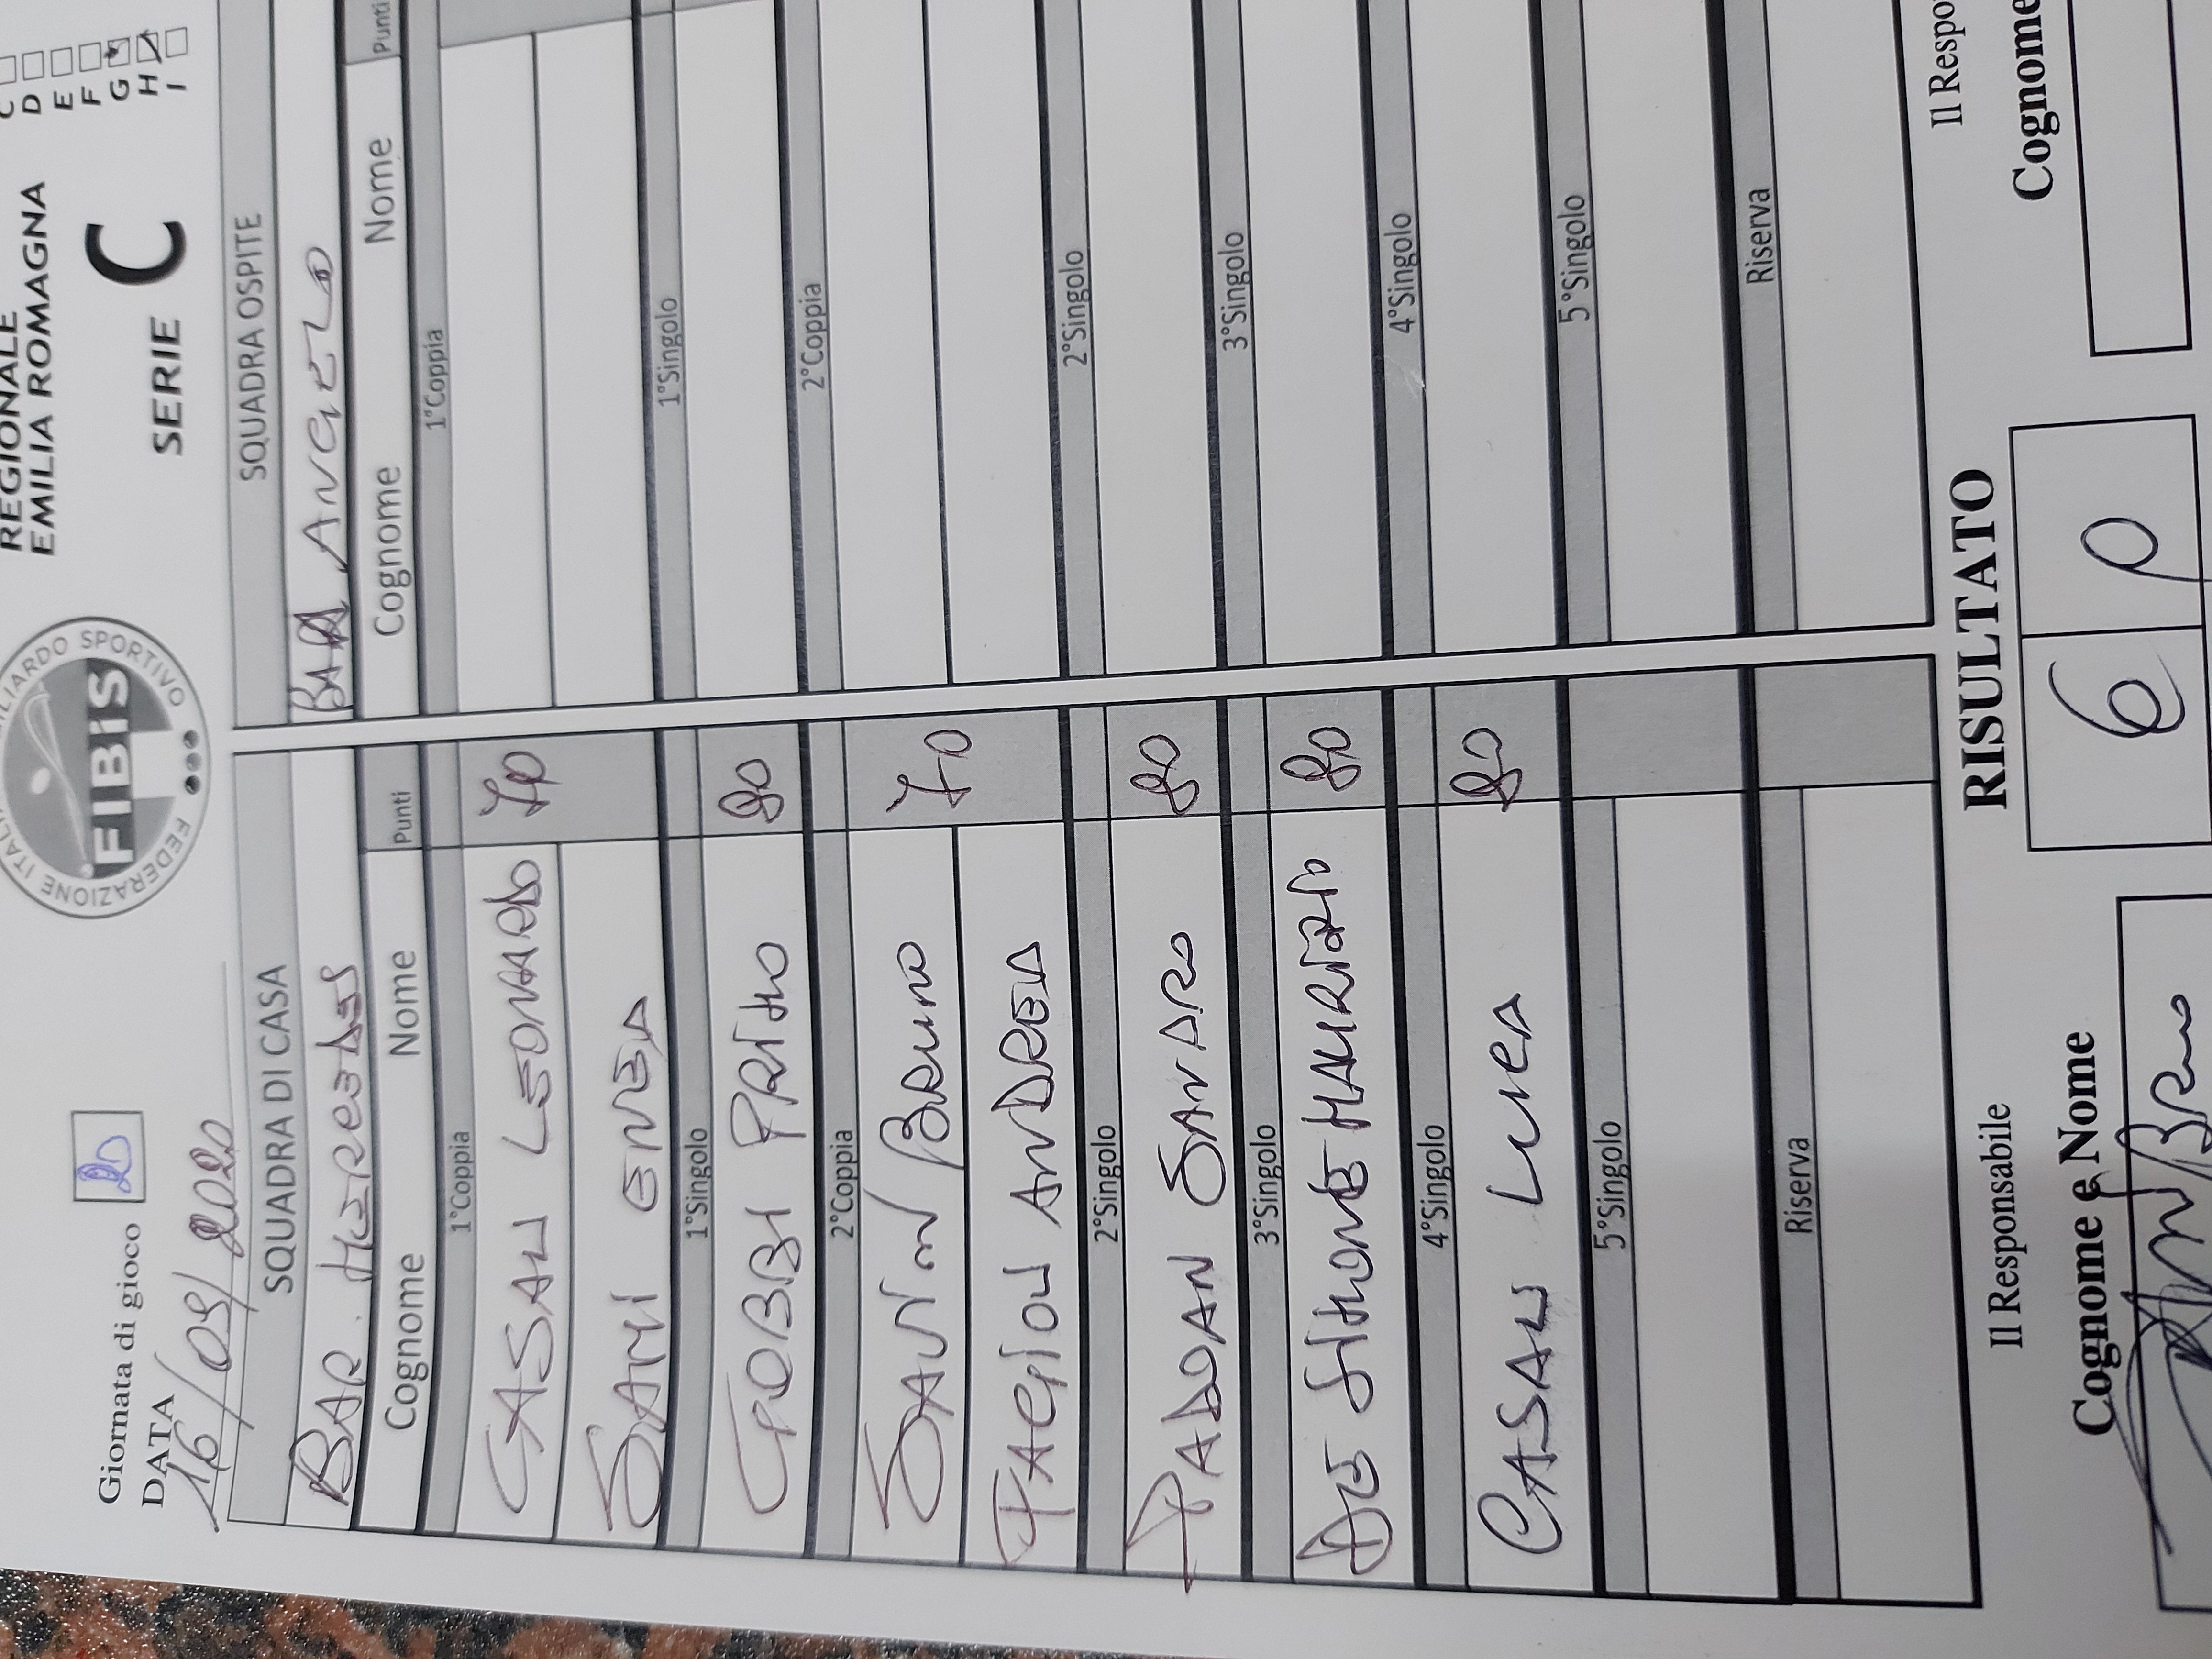 REGIONALE
EMILIA ROMAGNA
SERIE C
C
D
E
F
G
H
I
FEDERAZIONE ITALIA BILIARDO SPORTIVO
FIBIS
Giornata di gioco
DATA
16/09/2020
SQUADRA DI CASA
BAR
Cognome Nome Punti
1°Coppia
CASALI LEONARDO 70
SAMI ENEA
1°Singolo
GOBBI PRIMO 80
2°Coppia
SAVINI BRUNO 70
FAGIOLI ANDREA
2°Singolo
PADOAN SANDRO 80
3°Singolo
DE SIMONE MAURIZIO 80
4°Singolo
CASALI LUCA 80
5°Singolo
Riserva
SQUADRA OSPITE
BAR ANGELO
Cognome Nome Punti
1°Coppia
1°Singolo
2°Coppia
2°Singolo
3°Singolo
4°Singolo
5°Singolo
Riserva
Il Responsabile
Cognome e Nome
RISULTATO
6 0
Il Respo
Cognome